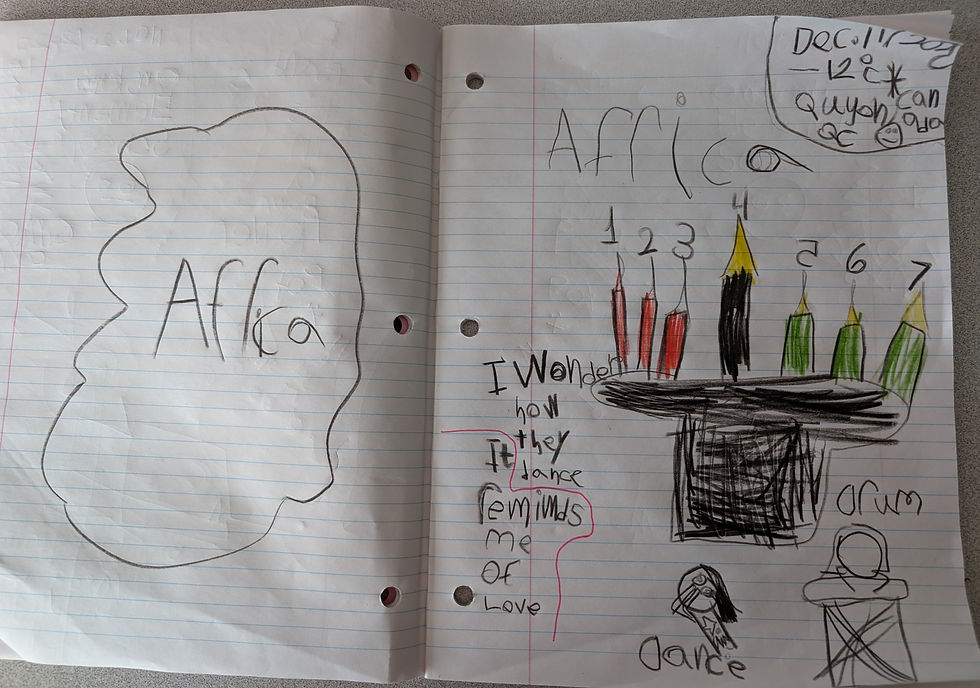 Africa
Africa
Dec.11
-12°C*
Quyon, Canada
QC
1 2 3 4 5 6 7
I Wonder
how
they
dance
It
reminds
me
of
Love
Drum
Dance